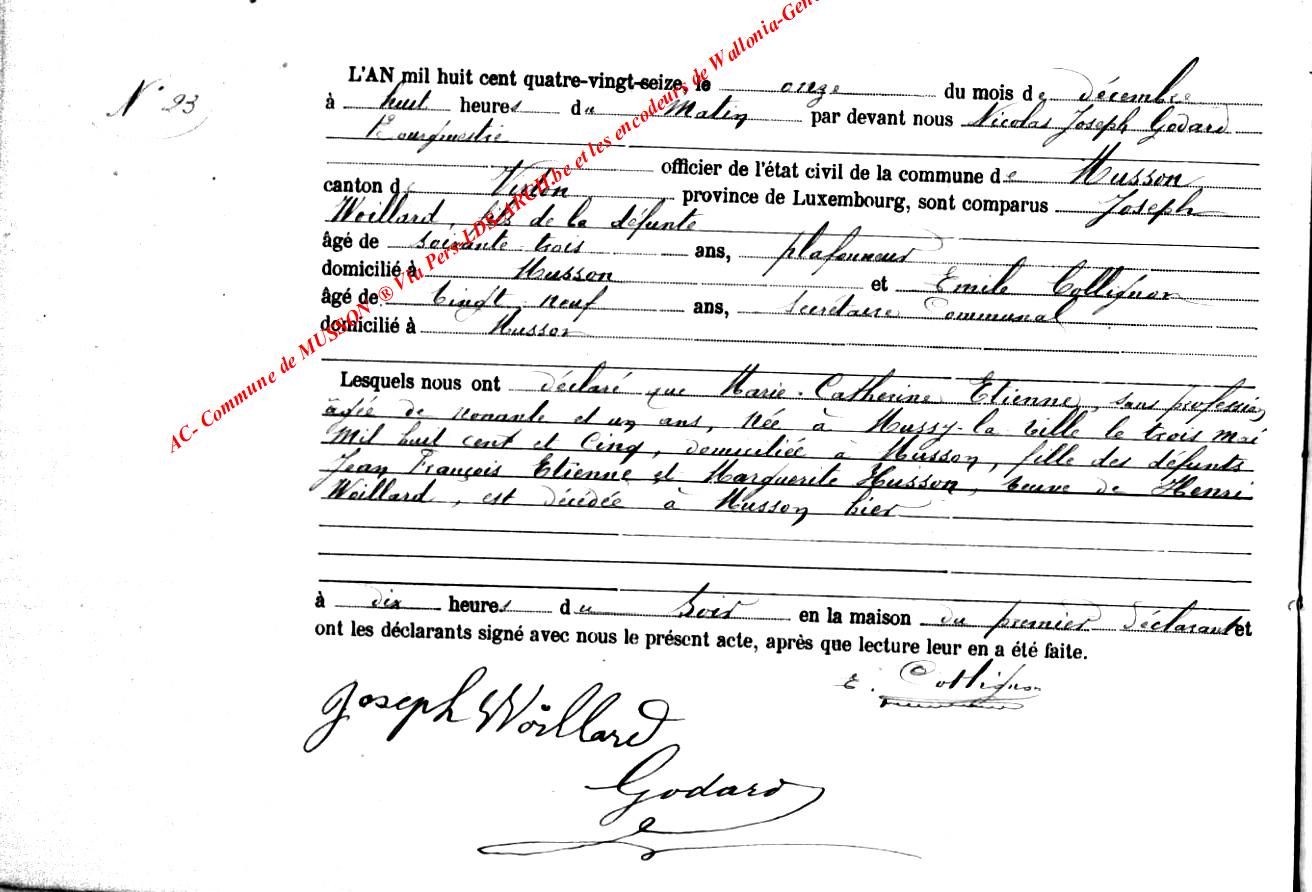 AC- Commune de MUSSON ® Via Pers LDS-ARCH.be et les encodeurs de Wallonia-Gen
N° 23
L'AN mil huit cent quatre-vingt-seize, le onze du mois de décembre
à huit heures du Matin par devant nous Nicolas Joseph Godard
Bourgmestre
officier de l'état civil de la commune de Musson
canton de Virton province de Luxembourg, sont comparus Joseph
Woillard, fils de la défunte
âgé de soixante trois ans, plafonneur
domicilié à Musson et Emile Collignon
âgé de vingt neuf ans, secrétaire Communal
domicilié à Musson
Lesquels nous ont déclaré que Marie-Catherine Etienne, sans profession,
âgée de nonante et un ans, née à Mussy-la-ville le trois mai
mil huit cent et cinq, domiciliée à Musson, fille des défunts
Jean François Etienne et Marguerite Husson, veuve de Henri
Woillard, est décédée à Musson hier
à dix heures du soir en la maison du premier déclarant et
ont les déclarants signé avec nous le présent acte, après que lecture leur en a été faite.
E. Collignon
Joseph Woillard
Godard